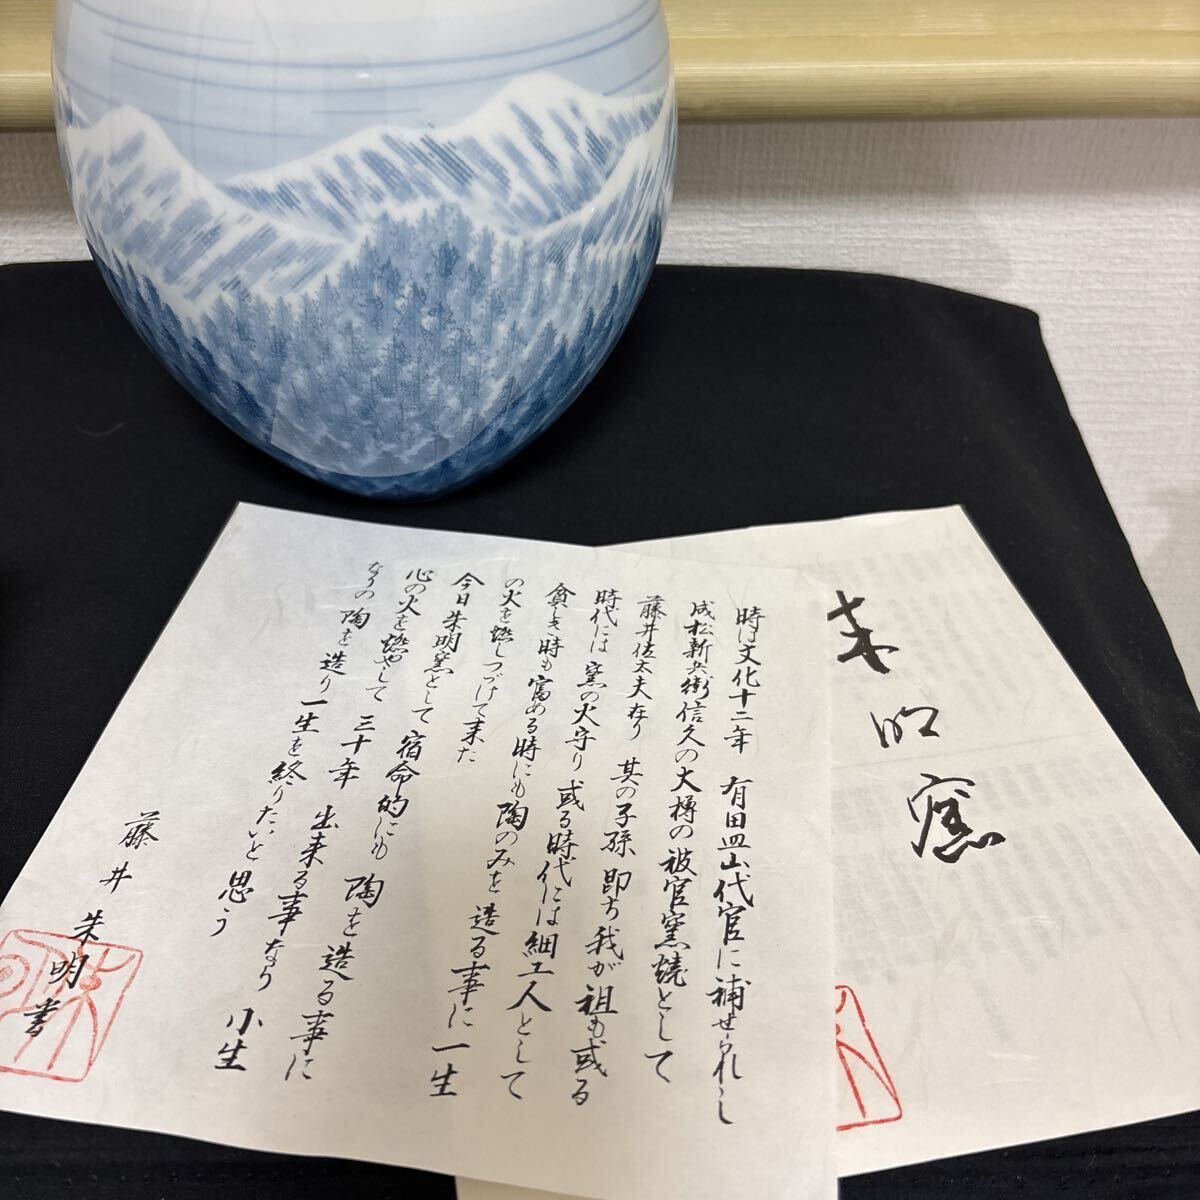 朱明窯
時は文化十二年 有田皿山代官に補せられし
成松新兵衛信久の大樽の被官窯焼として
藤井佐太夫有り 其の子孫 即ち我が祖も或る
時代には窯の火守り 或る時代には細工人として
貧しき時も富める時にも陶のみを造る事に一生
の火を燃しつづけて来た
今日朱明窯として宿命的にも陶を造る事に
心の火を燃やして 三十年 出来る事なり 小生
なりの陶を造り一生を終りたいと思う
藤井朱明書